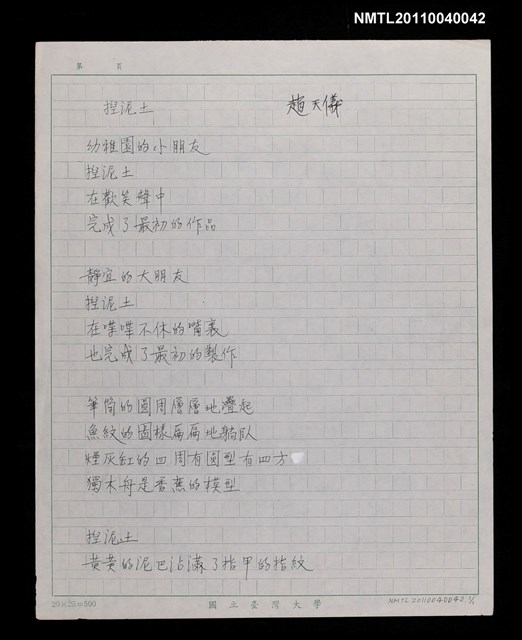 NMTL20110040042
第 頁
捏泥土 趙天儀
幼稚園的小朋友
捏泥土
在歡笑聲中
完成了最初的作品
靜宜的大朋友
捏泥土
在喋喋不休的嘴裏
也完成了最初的製作
筆筒的圓周層層地疊起
魚紋的圖樣扁扁地躺臥
煙灰缸的四周有圓型有四方
獨木舟是香蕉的模型
捏泥土
黄黄的泥巴沾滿了指甲的指紋
20×25=500 國立臺灣大學 NMTL20110040042, 1/1